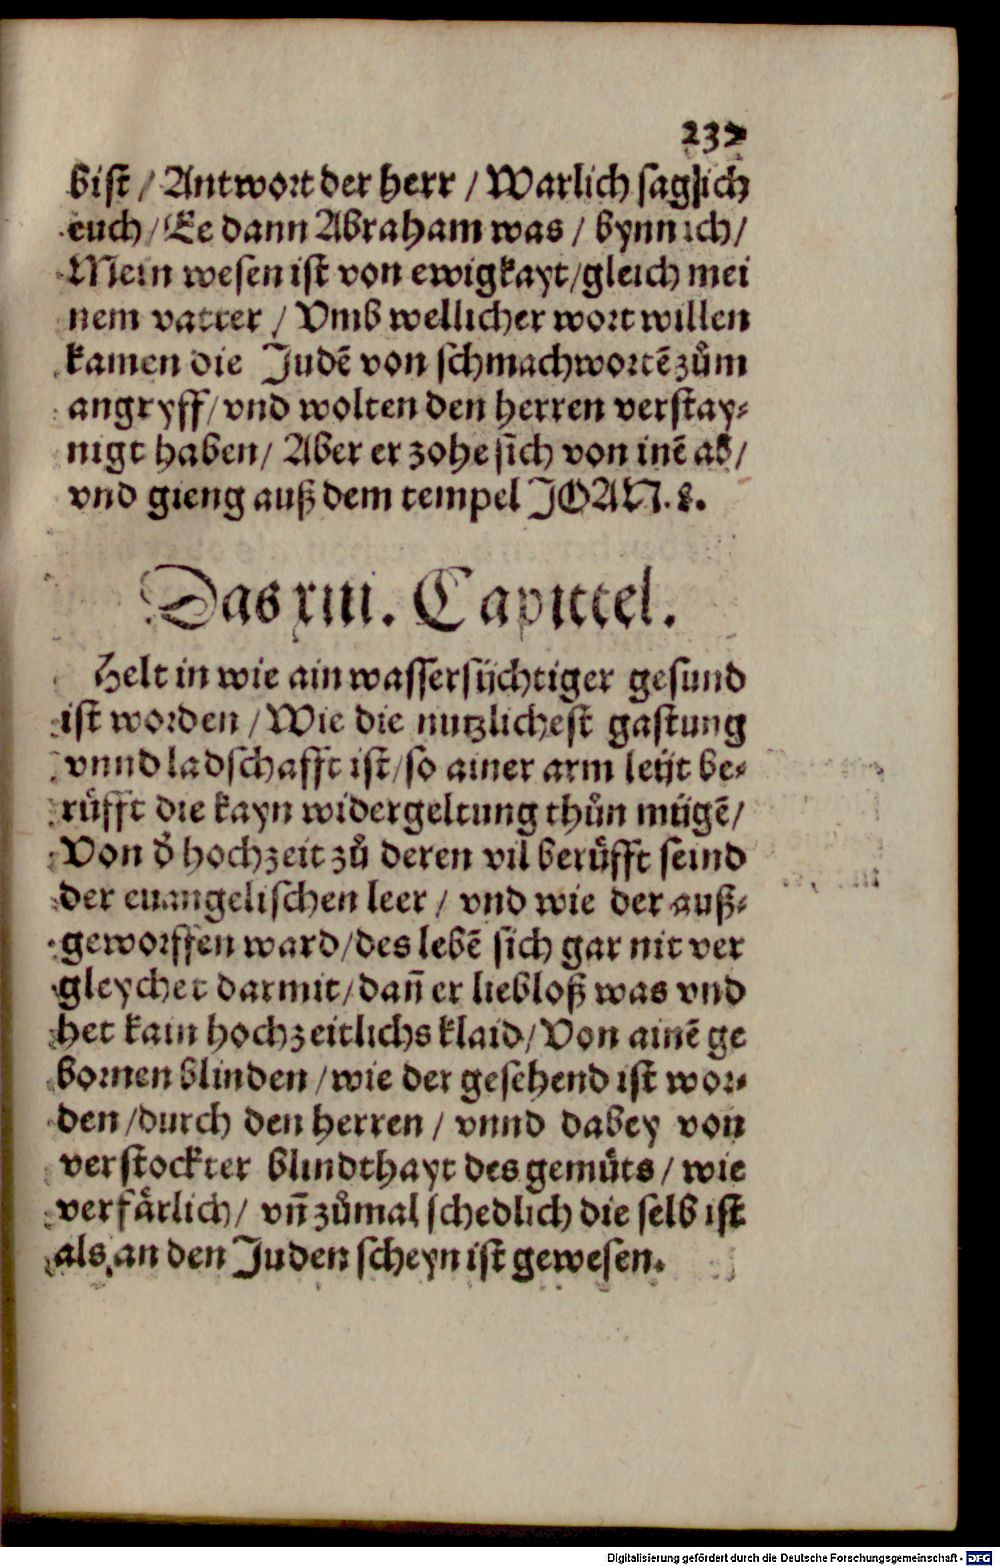 232
bist / Antwort der herr / Warlich sag ich
euch / Ee dann Abraham was / bynn ich /
Mein wesen ist von ewigkayt / gleich mei
nem vatter / Vmb wellicher wort willen
kamen die Judē von schmachwortē zům
angryff / vnd wolten den herren verstay⸗
nigt haben / Aber er zohe sich von inē ab /
vnd gieng auß dem tempel JOAN. 8.
Das xiii. Capittel.
Helt in wie ain wassersüchtiger gesund
ist worden / Wie die nutzlichest gastung
vnnd ladschafft ist / so ainer arm leüt be⸗
rüfft die kayn widergeltung thůn mügē /
Von d̕ hochzeit zů deren vil berüfft seind
der euangelischen leer / vnd wie der auß⸗
geworffen ward / des lebē sich gar nit ver
gleychet darmit / dañ er liebloß was vnd
het kain hochzeitlichs klaid / Von ainē ge
bornen blinden / wie der gesehend ist wor⸗
den / durch den herren / vnnd dabey von
verstockter blindthayt des gemüts / wie
verfärlich / vñ zůmal schedlich die selb ist
als an den Juden scheyn ist gewesen.
Digitalisierung gefördert durch die Deutsche Forschungsgemeinschaft - DFG